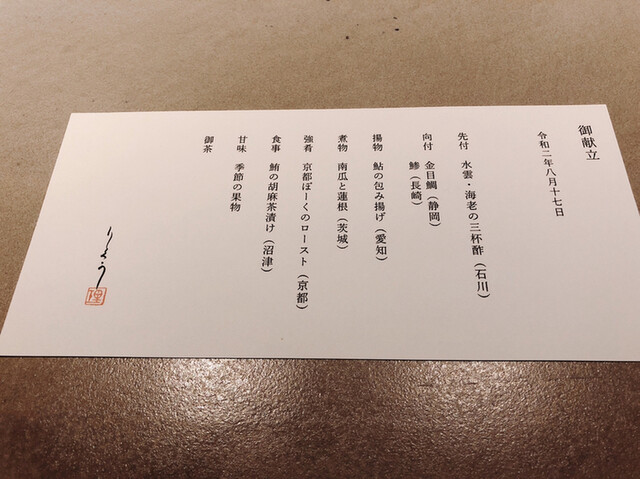 御献立
令和二年八月十七日
先付　水雲・海老の三杯酢（石川）
向付　金目鯛（静岡）
鯵（長崎）
揚物　鮎の包み揚げ（愛知）
煮物　南瓜と蓮根（茨城）
強肴　京都ぽーくのロースト（京都）
食事　鮪の胡麻茶漬け（沼津）
甘味　季節の果物
御茶
りょう
理